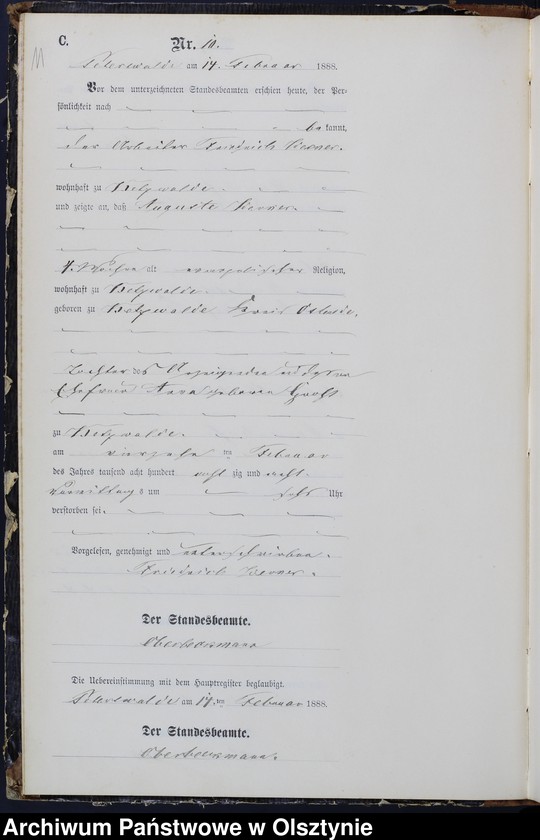 11
C.
Nr. 10.
Peterswalde am 14. Februar 1888.
Vor dem unterzeichneten Standesbeamten erschien heute, der Per-
sönlichkeit nach
bekannt,
der Arbeiter Friedrich
wohnhaft zu
und zeigte an, daß Auguste
4 Wochen alt evangelischer Religion,
wohnhaft zu
geboren zu Kreis Osterode,
Tochter des Anzeigenden und dessen
Ehefrau Anna geborene
zu
am vierzehnten Februar
des Jahres tausend acht hundert achtzig und acht
Vormittags um acht Uhr
verstorben sei.
Vorgelesen, genehmigt und unterschrieben.
Friedrich
Der Standesbeamte.
Die Uebereinstimmung mit dem Hauptregister beglaubigt.
Peterswalde am 14. ten Februar 1888.
Der Standesbeamte.
Archiwum Państwowe w Olsztynie